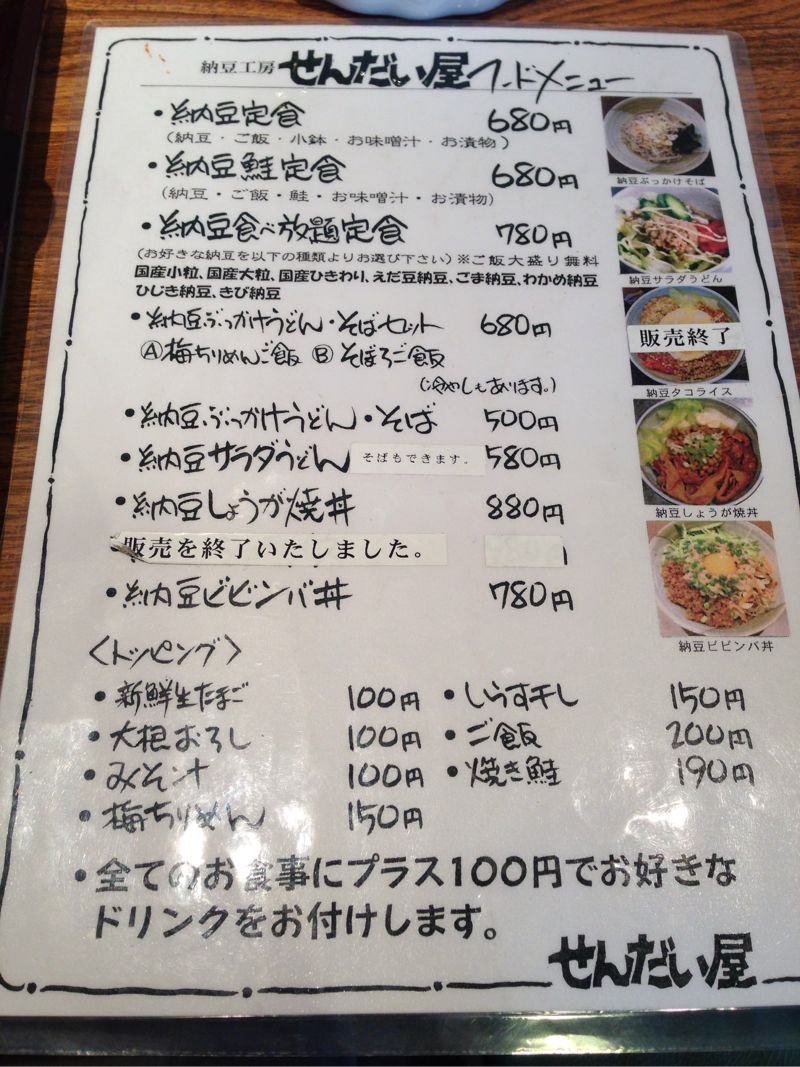 納豆工房 せんだい屋 フードメニュー
・納豆定食 680円
(納豆・ご飯・小鉢・お味噌汁・お漬物)
・納豆鮭定食 680円
(納豆・ご飯・鮭・お味噌汁・お漬物)
・納豆食べ放題定食 780円
(お好きな納豆を以下の種類よりお選び下さい)※ご飯大盛り無料
国産小粒、国産大粒、国産ひきわり、えだ豆納豆、ごま納豆、わかめ納豆
ひじき納豆、きび納豆
・納豆ぶっかけうどん・そばセット 680円
Ⓐ梅ちりめんご飯 Ⓑそぼろご飯
(冷やしもあります。)
・納豆ぶっかけうどん・そば 500円
・納豆サラダうどん そばもできます。 580円
・納豆しょうが焼丼 880円
・販売を終了いたしました。
・納豆ビビンバ丼 780円
納豆ぶっかけそば
納豆サラダうどん
販売終了
納豆タコライス
納豆しょうが焼丼
納豆ビビンバ丼
〈トッピング〉
・新鮮生たまご 100円 ・しらす干し 150円
・大根おろし 100円 ・ご飯 200円
・みそ汁 100円 ・焼き鮭 190円
・梅ちりめん 150円
・全てのお食事にプラス100円でお好きな
ドリンクをお付けします。
せんだい屋